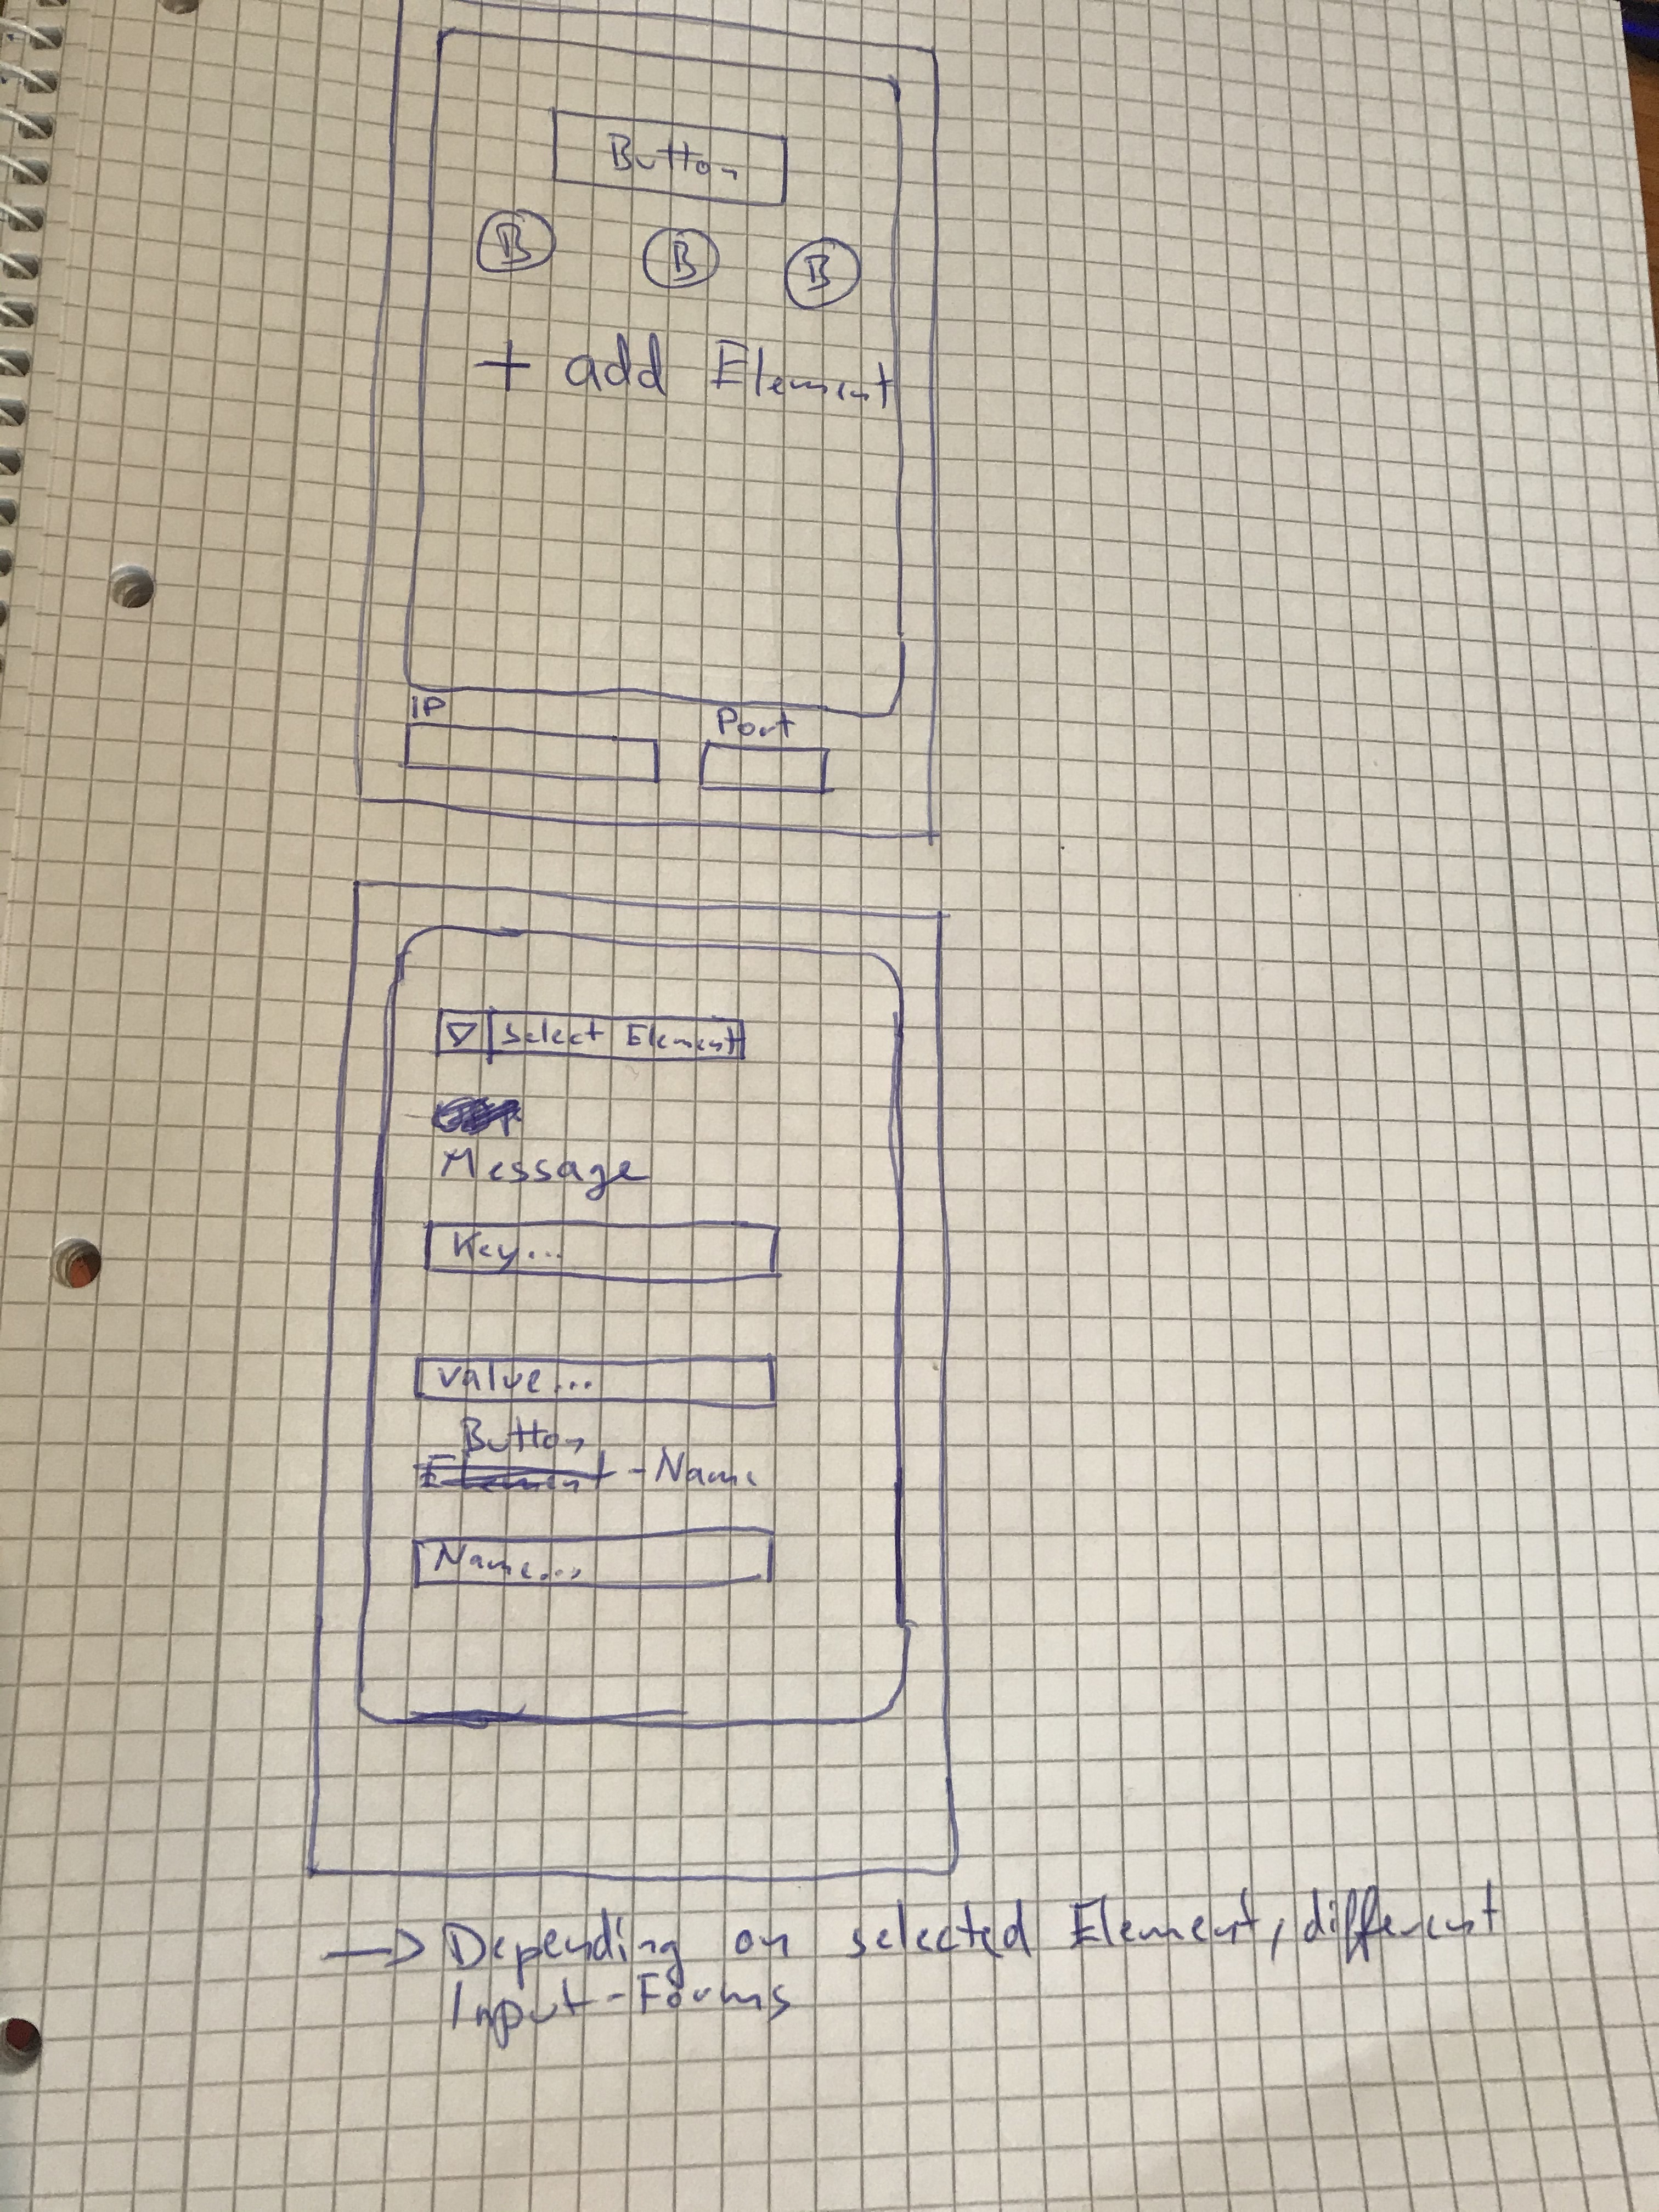 Button
B B B
+ add Element
IP Port
▽ select Element
Message
Key...
value...
Button
Element-Name
Name...
→ Depending on selected Element, different
Input-Forms